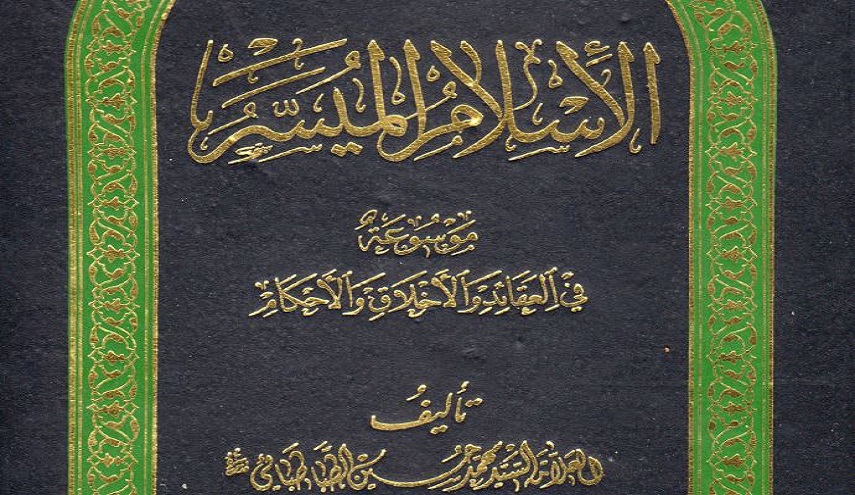 الإسلام الميسر
موسوعة
في العقائد والأخلاق والأحكام
تأليف
العلامة السيد محمد حسين الطباطبائي